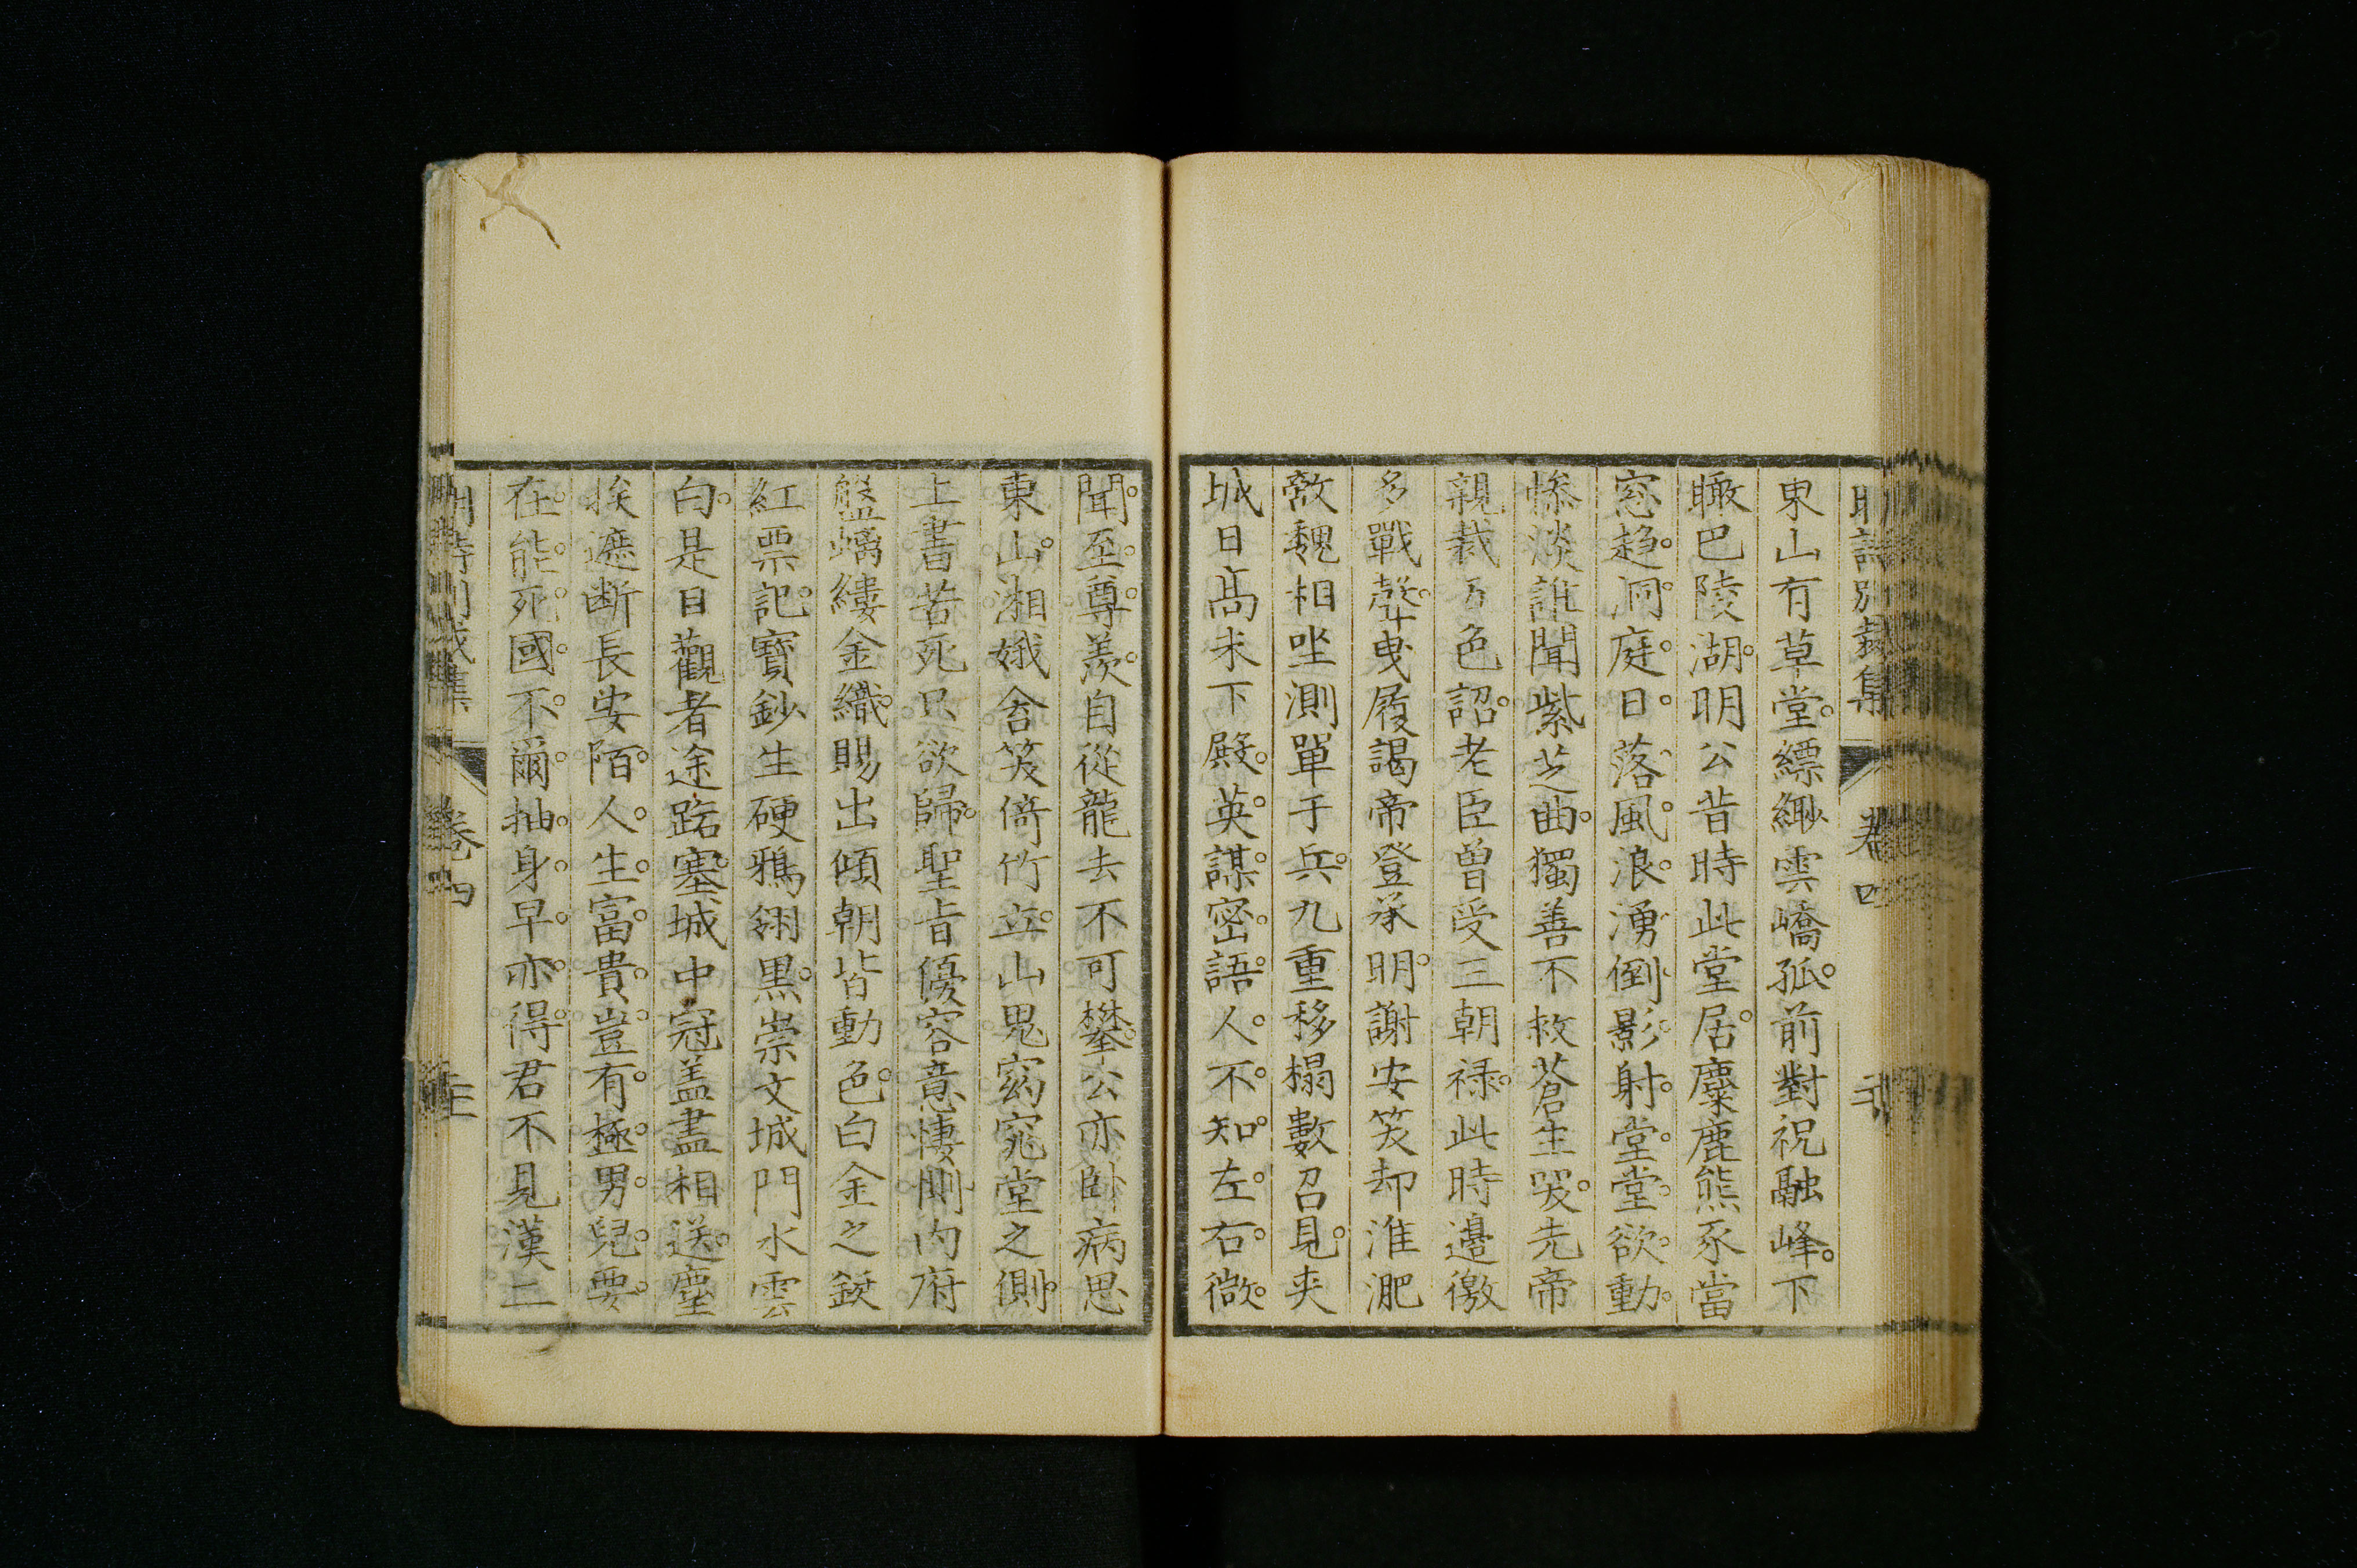 明詩別裁集 卷四
東山有草堂。縹緲雲嶠孤。前對祝融峰。下
瞰巴陵湖。明公昔時此堂居。麋鹿熊豕當
窓趨。洞庭日落風浪湧。倒影射堂堂欲動。
慘淡誰聞紫芝曲。獨善不救蒼生哭。先帝
親裁五色詔。老臣曾受三朝祿。此時邊徼
多戰聲。曳履謁帝登承明。謝安笑却淮淝
敵。魏相坐測單于兵。九重移榻數召見。夾
城日高未下殿。英謀密語人不知。左右微
聞至尊羨。自從龍去不可攀。公亦臥病思
東山。湘娥含笑倚竹立。山鬼窈窕堂之側。
上書苦死只欲歸。聖旨優容意悽惻。內府
盤螭縷金織。賜出傾朝皆動色。白金之鋌
紅票記。寶鈔生硬鴉翎黑。崇文城門水雲
白。是日觀者途路塞。城中冠蓋盡相送。塵
埃遮斷長安陌。人生富貴豈有極。男兒要
在能死國。不爾抽身早亦得。君不見漢二
明詩別裁集 卷四